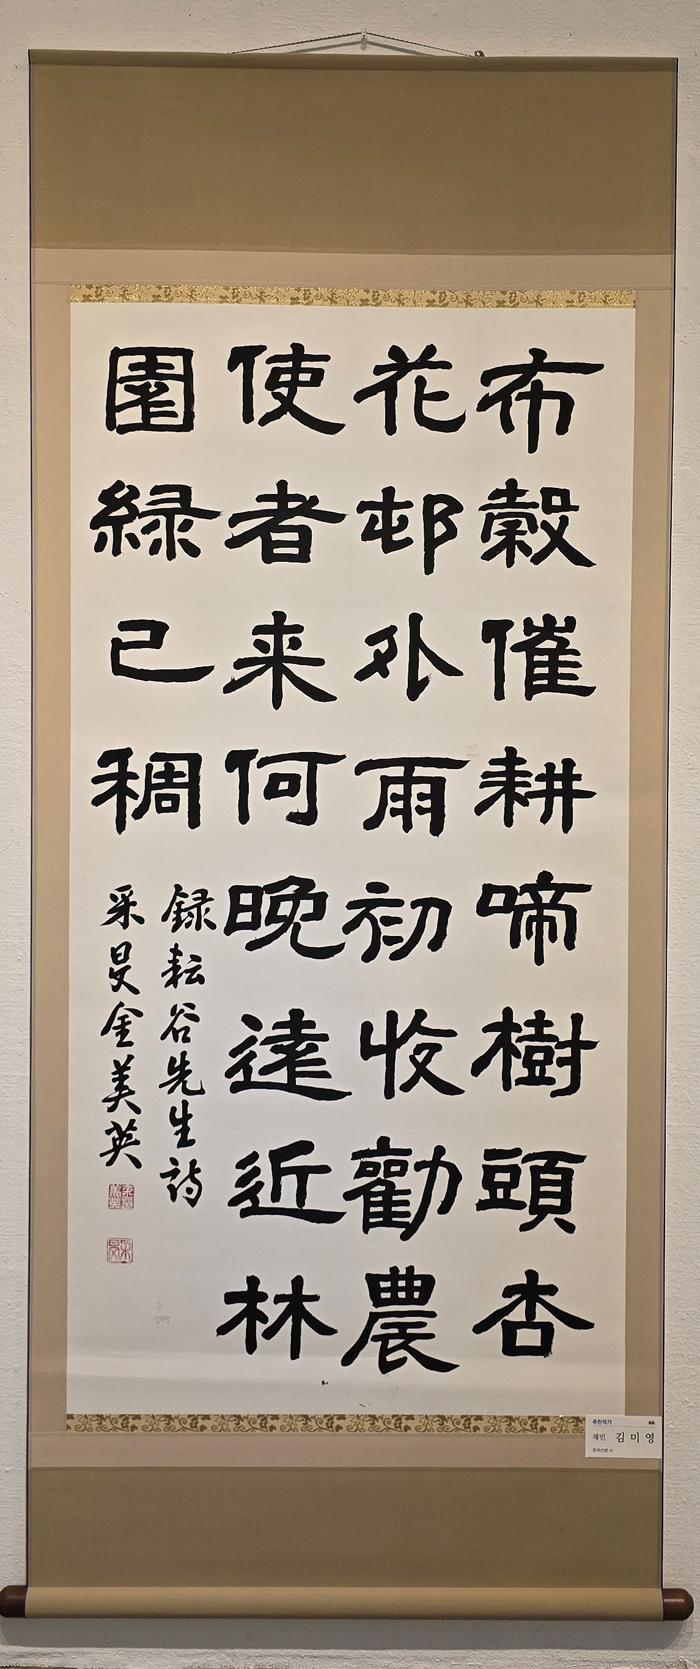 布穀催耕啼樹頭杏
花邨外雨初收勸農
使者来何晩遠近林
園緑已稠
録耘谷先生詩
采旻金美英
추천작가
채민 김미영
운곡선생 시